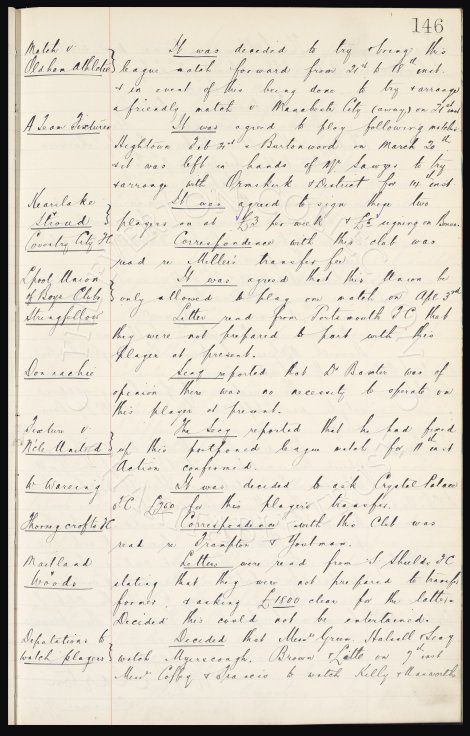 146
Match v It was decided to try & bring this
Oldham Athletic league match forward from 21st to 18th inst.
& in event of this being done to try & arrange
a friendly match v Manchester City (away) on 21st inst
A Team Fixtures It was agreed to play following matches
Hightown Feb 21st & Burtonwood on March 20th
& it was left in hands of Mr Sawyer to try
& arrange with Ormskirk & District for 14th inst.
Kearslake It was agreed to sign these two
Stroud players on at £3 per week & £5 signing on Bonus.
Coventry City FC Correspondence with this club was
read re Miller's transfer fee
L'pool Union It was agreed that this Union be
of Boys Clubs only allowed to play one match on Apr 3rd
Stringfellow Letter read from Portsmouth F.C. that
they were not prepared to part with this
player at present.
Donnachie Secy reported that Dr Baxter was of
opinion there was no necessity to operate on
this player at present.
Fixture v The Secy reported that he had fixed
N'cle United up this postponed league match for 11th inst
Action confirmed.
W Wareing It was decided to ask Crystal Palace
F.C. £300 for this player's transfer.
Thornycrofts FC Correspondence with this Club was
read re Frampton & Youtman.
Maitland Letters were read from S. Shields F.C
Woods stating that they were not prepared to transfer
former, & asking £1800 clear for the latter.
Decided this could not be entertained.
Deputations to Decided that Messrs Green, Halsall & Secy
watch players watch Myerscough, Brown & Latte on 7th inst
Messrs Coffey & Francis to watch Kelly &